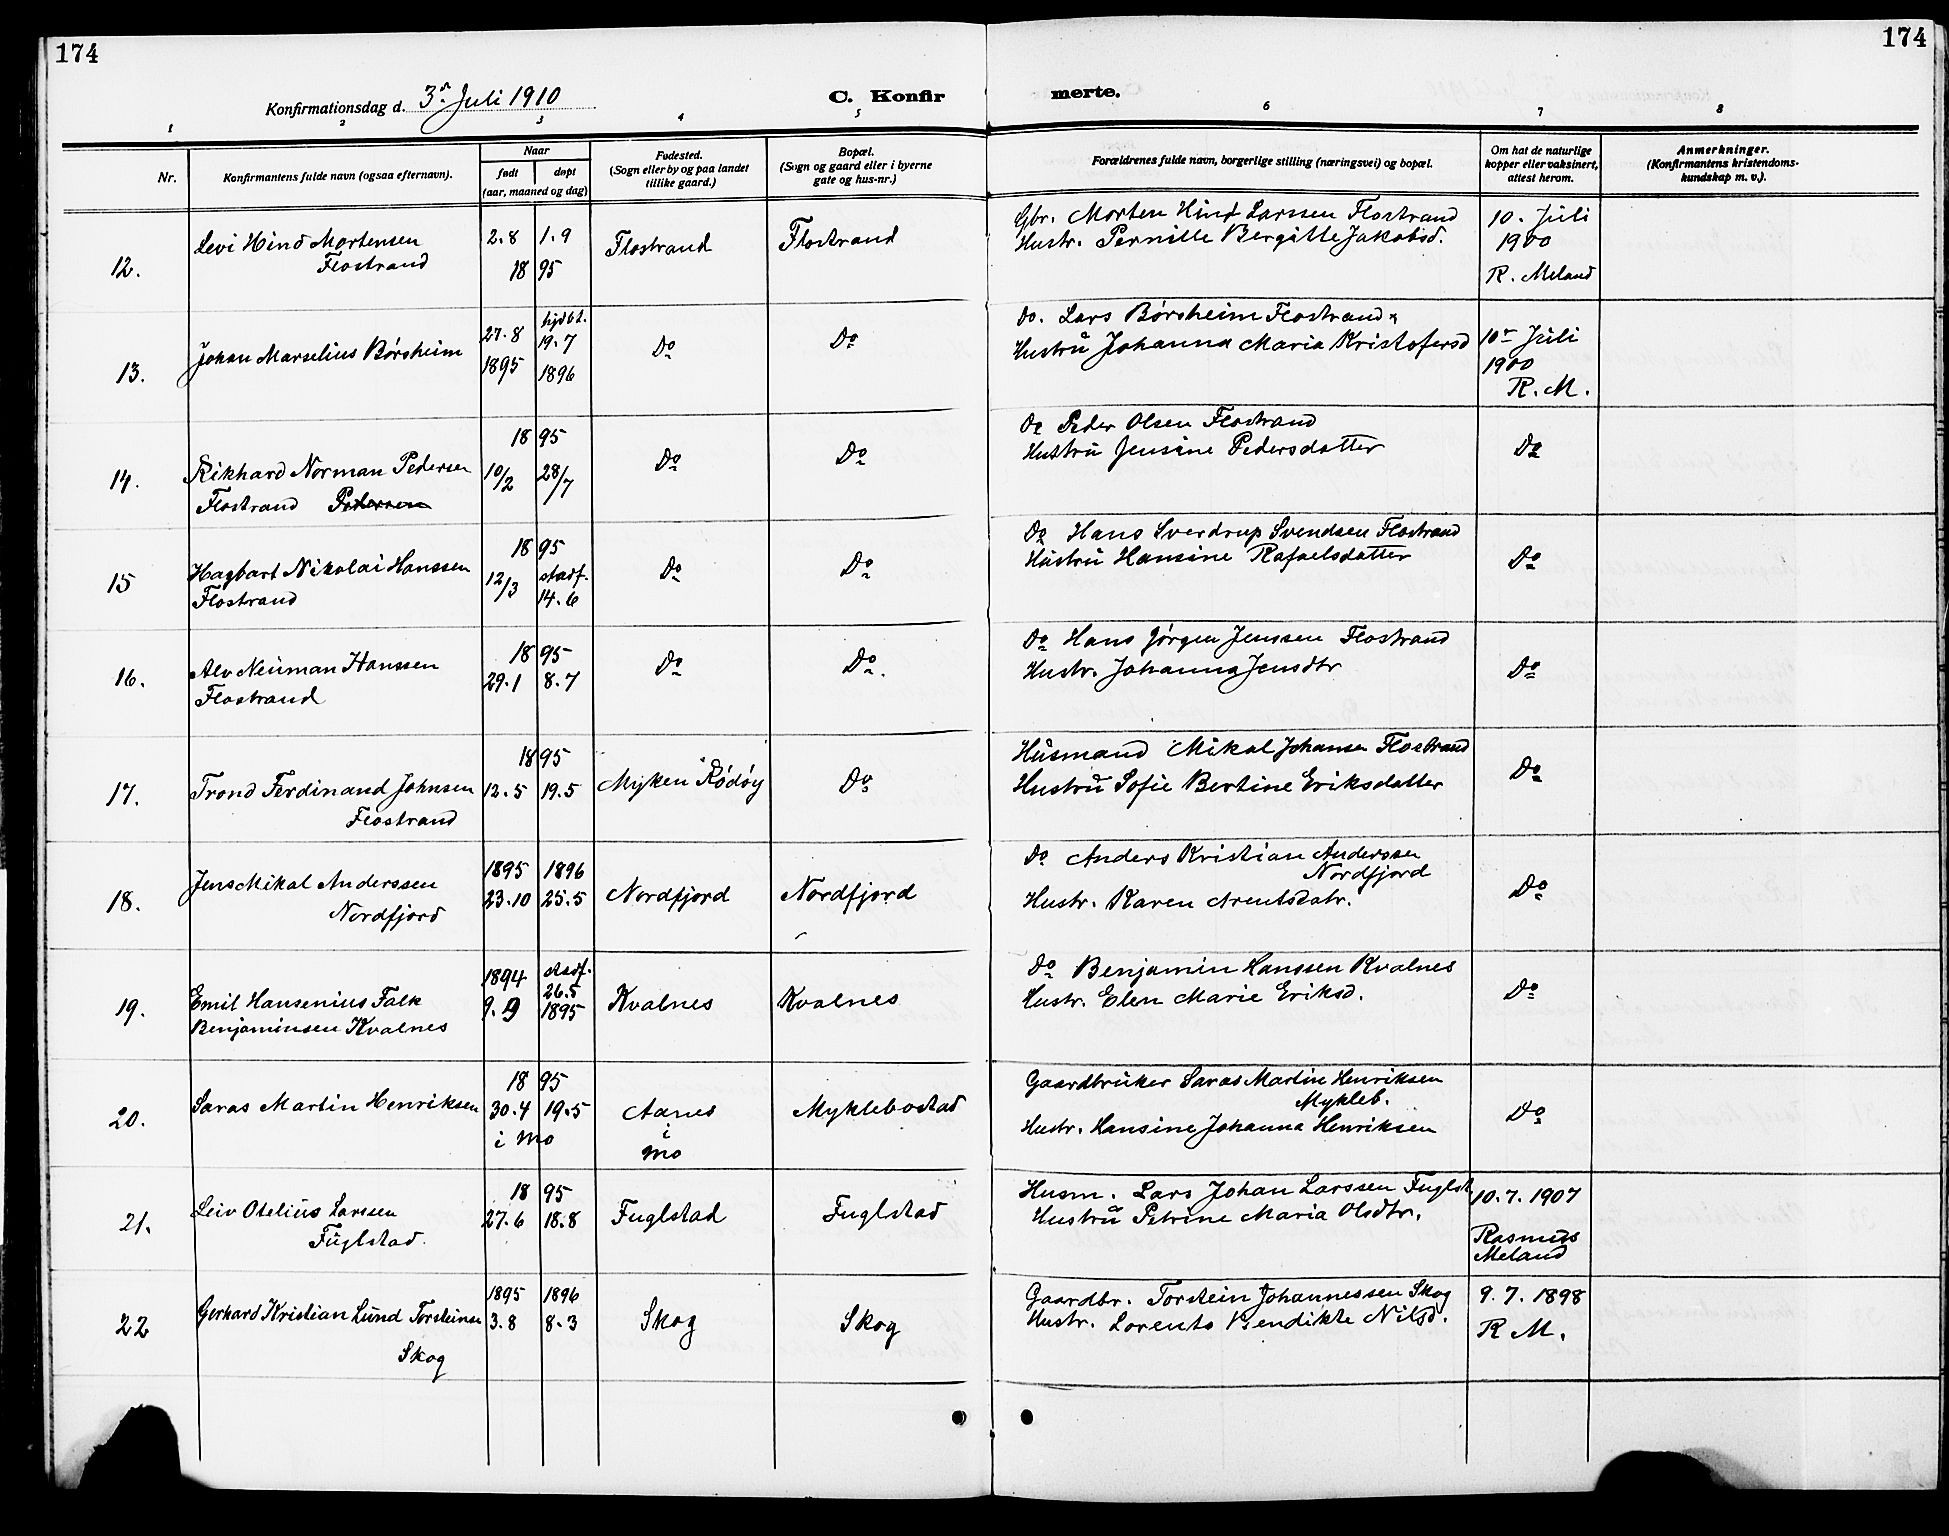 174
174
Konfirmationsdag d. 3. Juli 1910
C. Konfir
merte.
1
2
3
4
5
6
7
8
Nr.
Konfirmantens fulde navn (ogsaa efternavn).
Naar
født
døpt
(aar, maaned og dag)
Fødested.
(Sogn eller by og paa landet
tillike gaard.)
Bopæl.
(Sogn og gaard eller i byerne
gate og hus-nr.)
Forældrenes fulde navn, borgerlige stilling (næringsvei) og bopæl.
Om hat de naturlige
kopper eller vaksinert,
attest herom.
Anmerkninger.
(Konfirmantens kristendoms-
kundskap m. v.).
12.
Levi Hind Mortensen
Flostrand
2.8
1.9
18 95
Flostrand
Flostrand
Gbr. Morten Hind Larssen Flostrand
Hustr. Pernille Bergitte Jakobsd.
10. Juli
1900
R. Meland
13.
Johan Marselius Børsheim
27.8
1895
hjdbt.
19.7
1896
Do
Do
Do. Lars Børsheim Flostrand
Hustru Johanna Maria Kristofersd
10 Juli
1900
R. M.
14.
Rikhard Norman Pedersen
Flostrand Pedersen
18 95
10/2
28/7
Do
Do
Do Peder Olsen Flostrand
Hustru Jensine Pedersdatter
Do
15
Hagbart Nikolai Hanssen
Flostrand
18 95
12/3
stadf.
14.6
Do
Do
Do Hans Sverdrup Svendsen Flostrand
Hustru Hansine Rafaelsdatter
Do
16.
Alv Neuman Hanssen
Flostrand
18 95
29.1
8.7
Do
Do.
Do Hans Jørgen Jenssen Flostrand
Hustr. Johanna Jensdtr
Do
17.
Trond Ferdinand Johnsen
Flostrand
18 95
12.5
19.5
Myken Rødøy
Do
Husmand Mikal Johansen Flostrand
Hustru Sofie Bertine Eriksdatter
Do
18.
Jens Mikal Anderssen
Nordfjord
1895
1896
23.10
25.5
Nordfjord
Nordfjord
Do Anders Kristian Anderssen
Nordfjord
Hustr. Karen Arentsdatr.
Do
19.
Emil Hansenius Falk
Benjaminsen Kvalnes
1894
9.9
stadf.
26.5
1895
Kvalnes
Kvalnes
Do Benjamin Hanssen Kvalnes
Hustr. Elen Marie Eriksd.
Do
20.
Saras Martin Henriksen
18 95
30.4
19.5
i Mo
Aanes
i
Mo
Myklebostad
Gaardbruker Saras Martin Henriksen
Mykleb.
Hustr. Hansine Johanna Henriksen
Do
21.
Leiv Otelius Larssen
Fuglstad.
18 95
27.6
18.8
Fuglstad
Fuglstad
Husm. Lars Johan Larssen Fuglst
Hustru Petrine Maria Olsdtr.
10.7.1907
Rasmus
Meland
22
Gerhard Kristian Lund Torsteinsen
Skog
1895
1896
3.8
8.3
Skog
Skog
Gaardbr. Torstein Johannessen Skog
Hustr. Lorents Bendikte Nilsd.
9.7.1898
R M.